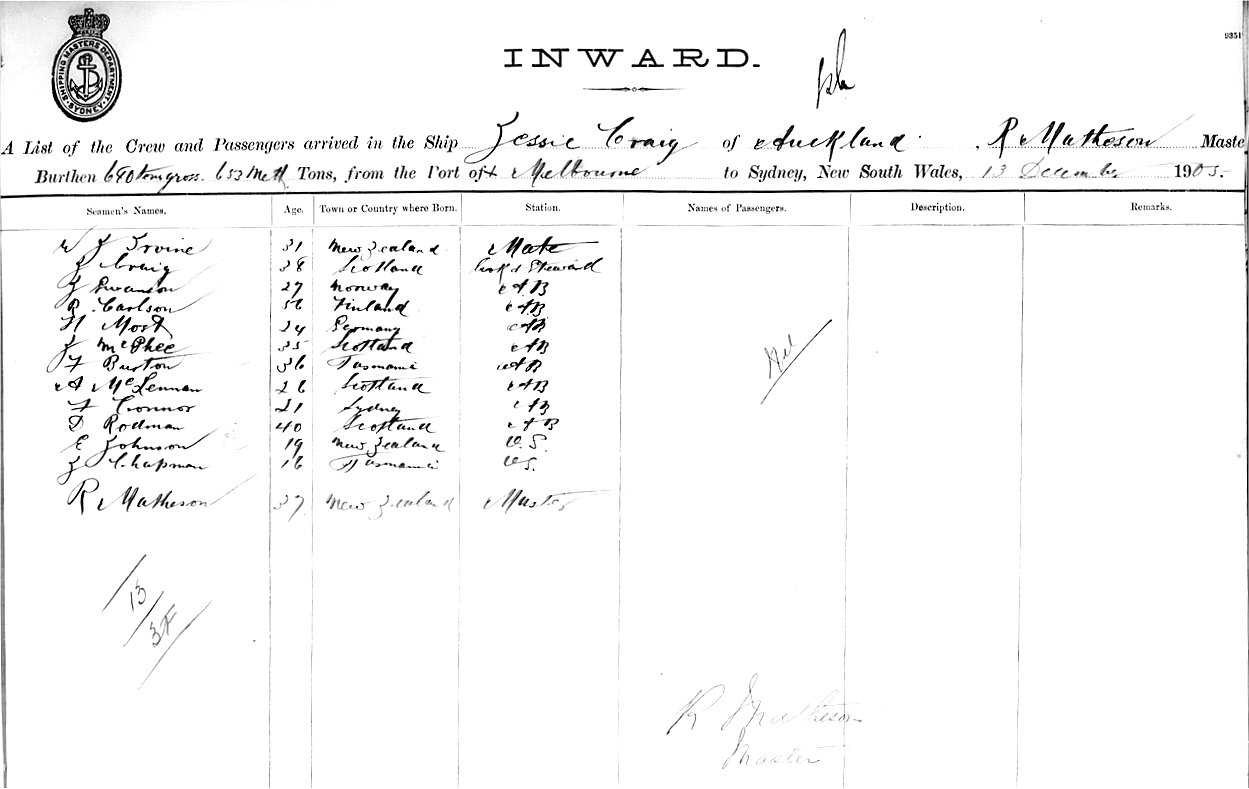 SHIPPING MASTERS DEPARTMENT SYDNEY
9351
INWARD.
A List of the Crew and Passengers arrived in the Ship Jessie Craig of Auckland R Matheson Maste
Burthen 690 tons gross. 653 nett Tons, from the Port of Melbourne to Sydney, New South Wales, 13 December 1905.
Seamen's Names. Age. Town or Country where Born. Station. Names of Passengers. Description. Remarks.
J Irvine 31 New Zealand Mate
J Craig 38 Scotland Cook & Steward
J Swanson 27 Norway AB
R. Carlson 56 Finland AB
H Most 24 Germany AB
J McPhee 35 Scotland AB
F Burton 36 Tasmania AB
A McLennan 26 Scotland AB
F Connor 21 Sydney AB
D Rodman 40 Scotland AB
E Johnson 19 New Zealand O.S.
J Chapman 16 Tasmania O.S.
R Matheson 37 New Zealand Master
Nil
13
3F
R Matheson
Master